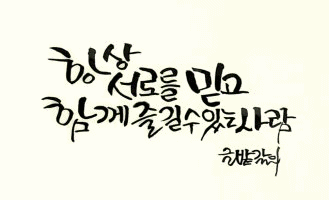 항상 서로를 믿고
함께 즐길수있는사람